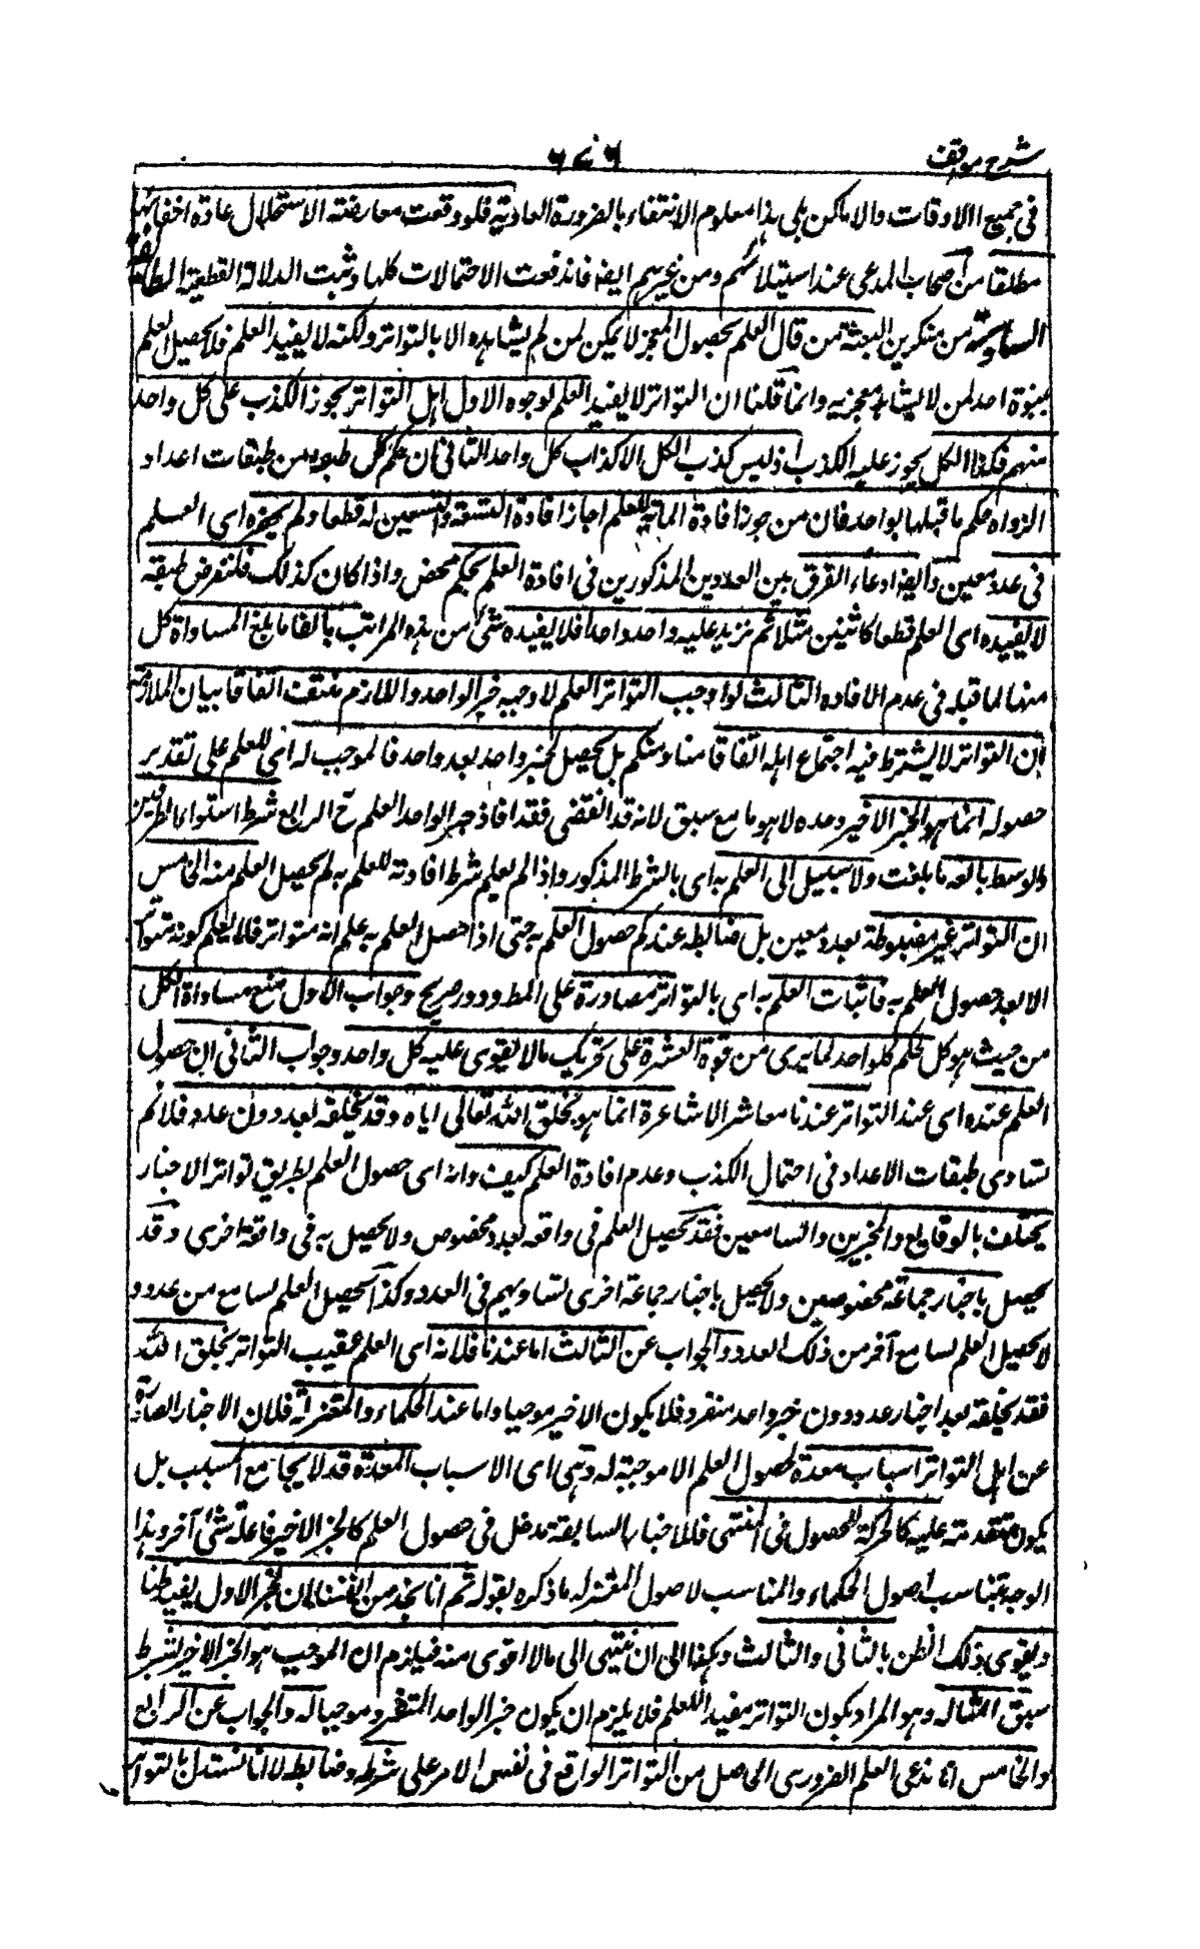 شرح مواقف
٦٧٦
في جميع الاوقات والاماكن بلى هذا معلوم الانتفاء بالضرورة العادية فلو وقعت معارضته لاستحال عادة اخفائها
مطلقا من اصحاب المدعى عند استيلائهم ومن غيرهم ايضا فاندفعت الاحتمالات كلها وثبت الدلالة القطعية الطائفة
السادسة من منكرين البعثة من قال العلم بحصول المعجز لا يمكن لمن لم يشاهده الا بالتواتر ولكنه لا يفيد العلم فلا يحصل العلم
بنبوة احد لمن لا يشاهد معجزته وانما قلنا ان التواتر لا يفيد العلم لوجوه الاول اهل التواتر يجوز الكذب على كل واحد
منهم فكذا الكل يجوز عليه الكذب اذ ليس كذب الكل الا كذاب كل واحد الثاني ان حكم كل طبقة من طبقات اعداد
الرواة حكم ما قبلها بواحد فان من جوز افادة المائة للعلم اجاز افادة التسعة والتسعين له قطعا ولم يحصره اى العلم
في عدد معين وايضا ادعاء الفرق بين العددين المذكورين في افادة العلم تحكم محض واذا كان كذلك فلنفرض طبقة
لا يفيده اى العلم قطعا كاثنين مثلا ثم نزيد عليه واحدا واحدا فلا يفيده شئ من هذه المراتب بالغا ما بلغ لمساواة كل
منها لما قبله في عدم الافادة الثالث لو اوجب التواتر العلم لاوجبه خبر الواحد واللازم منتف اتفاقا بيان الملازمة
ان التواتر لا يشترط فيه اجتماع اهله اتفاقا منا ومنكم بل يحصل بخبر واحد بعد واحد فالموجب له اى للعلم على تقدير
حصوله انما هو الخبر الاخير وحده لا هو مع ما سبق لانه قد انقضى فقد افاد خبر الواحد العلم ح الرابع شرط استواء الطرفين
والوسط بالغة ما بلغت ولا سبيل الى العلم به اى بالشرط المذكور واذا لم يعلم شرط افادته للعلم به لم يحصل العلم منه الخامس
ان التواتر غير مضبوطة بعدد معين بل ضابطه عندكم حصول العلم به حتى اذا حصل العلم به علم انه متواتر فلا يعلم كونه متواترا
الا بعد حصول العلم به فاثبات العلم به اى بالتواتر مصادرة على المط ودور صريح وجواب الاول منع مساواة الكل
من حيث هو كل لحكم كل واحد لما يرى من قوة العشرة على تحريك ما لا يقوى عليه كل واحد وجواب الثاني ان حصول
العلم عنده اى عند التواتر عندنا معاشر الاشاعرة انما هو بخلق الله تعالى اياه وقد يخلقه بعدد دون عدد فلا نم
تساوى طبقات الاعداد في احتمال الكذب وعدم افادة العلم كيف وانه اى حصول العلم بطريق تواتر الاخبار
يختلف بالوقايع والمخبرين والسامعين فقد يحصل العلم في واقعة بعدد مخصوص ولا يحصل به في واقعة اخرى وقد
يحصل باخبار جماعة مخصوصين ولا يحصل باخبار جماعة اخرى تساويهم في العدد وكذا يحصل العلم لسامع من عدد و
لا يحصل العلم لسامع آخر من ذلك العدد والجواب عن الثالث اما عندنا فلانه اى العلم عقيب التواتر بخلق الله
فقد يخلقه بعد اخبار عدد دون خبر واحد منفرد فلا يكون الاخير موجبا واما عند الحكماء والمعتزلة فلان الاخبار الصادرة
عن اهل التواتر اسباب معدة لحصول العلم لا موجبة له وهى اى الاسباب المعدة قد لا يجامع المسبب بل
يكون متقدمة عليه كالحركة للحصول في المنتهى فللاخبار السابقة مدخل في حصول العلم كالخبر الاخير فاعله شئ آخر وهذا
الوجه يناسب اصول الحكماء والمناسب لاصول المعتزلة ما ذكره بقوله ثم انا نجد من انفسنا ان الخبر الاول يفيد ظنا
ويقوى ذلك الظن بالثاني والثالث وهكذا الى ان ينتهى الى ما لا اقوى منه فيلزم ان الموجب هو الخبر الاخير بشرط
سبق امثاله وهو المراد بكون التواتر مفيدا للعلم فلا يلزم ان يكون خبر الواحد المتفرد موجبا له والجواب عن الرابع
والخامس انا ندعى العلم الضرورى الحاصل من التواتر الواقع في نفس الامر على شرطه وضابطه لا انا نستدل بالتواتر